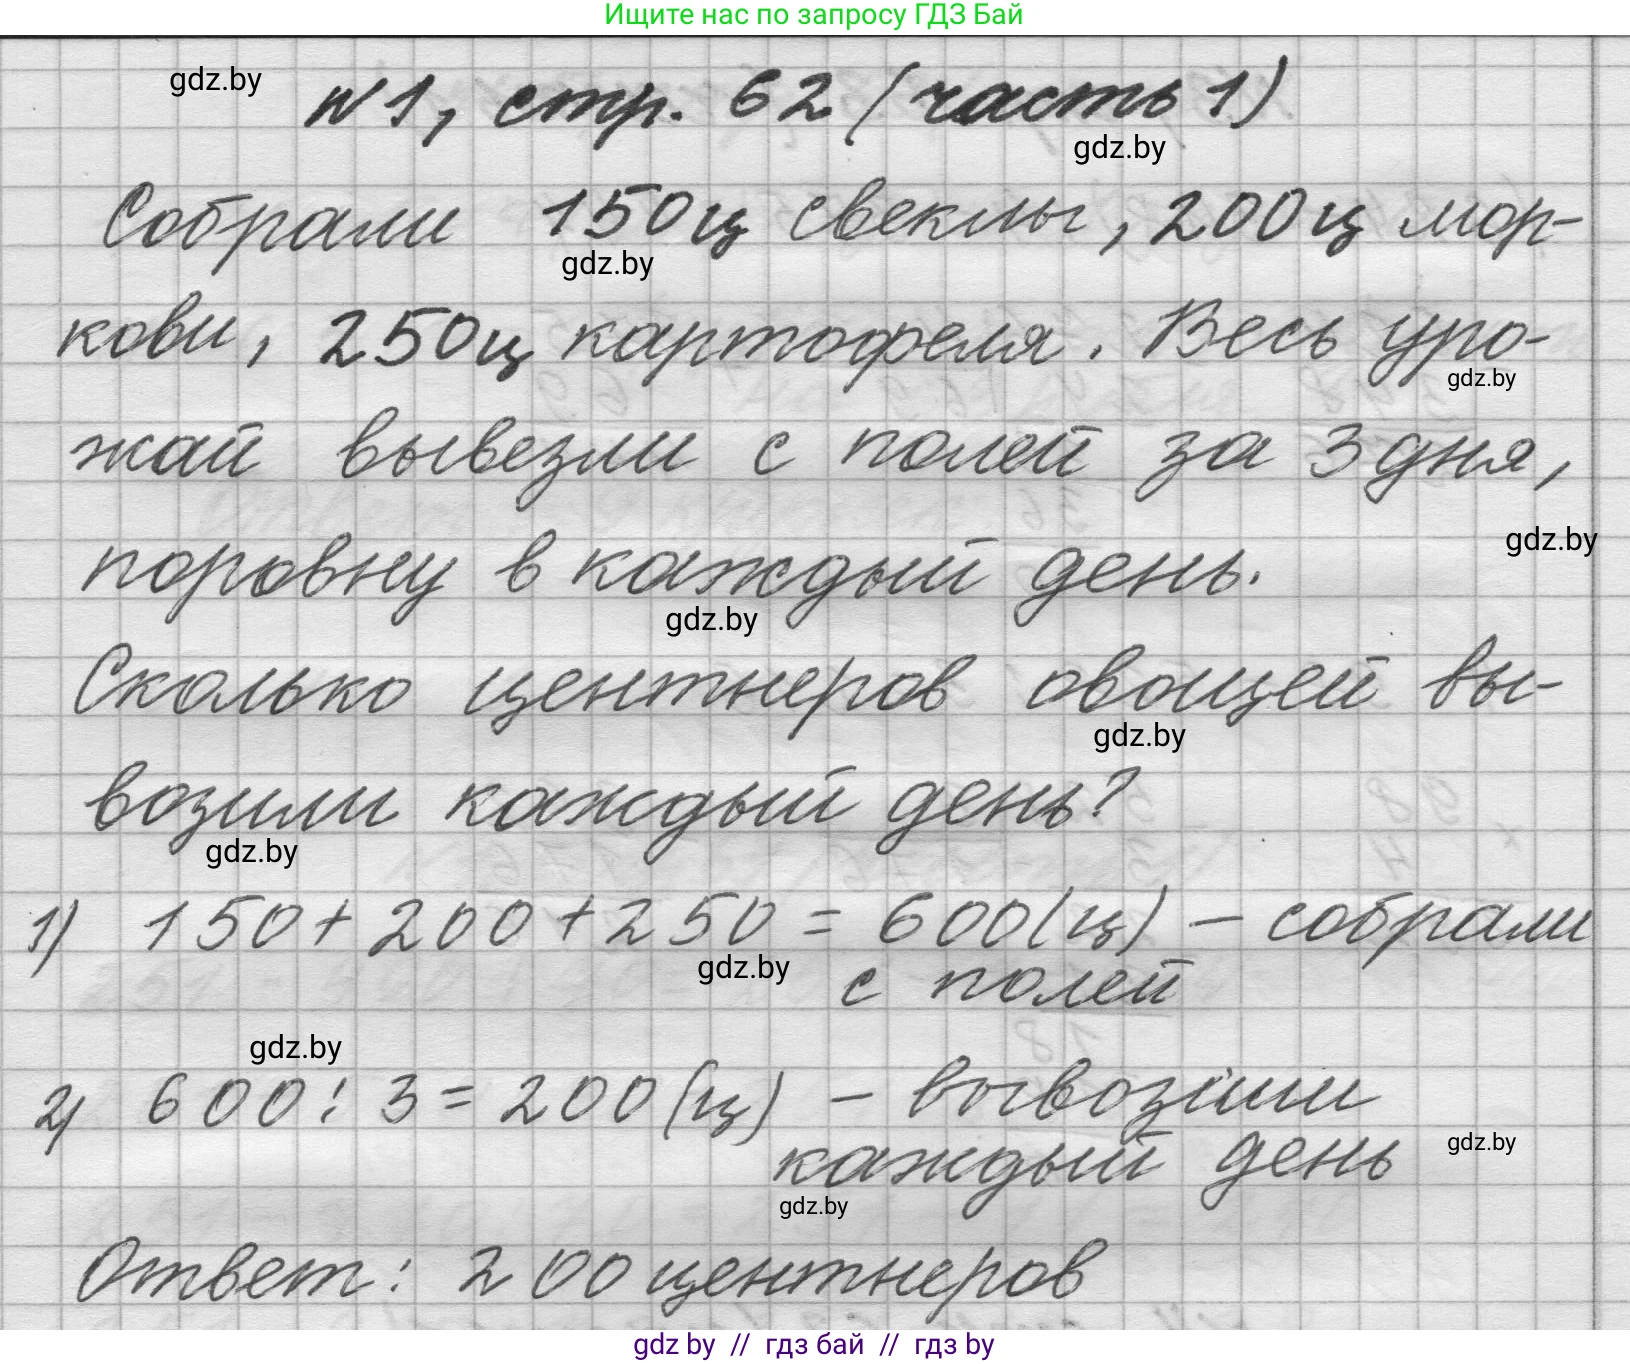 Ищите нас по запросу ГДЗ Бай
gdz.by
№1, стр. 62 (часть 1)
gdz.by
Собрали 150ц свеклы, 200ц мор-
gdz.by
кови, 250ц картофеля. Весь уро-
gdz.by
жай вывезли с полей за 3 дня,
gdz.by
поровну в каждый день.
gdz.by
Сколько центнеров овощей вы-
gdz.by
возили каждый день?
gdz.by
1) 150+200+250=600(ц) – собрали
gdz.by
с полей
gdz.by
2) 600:3=200(ц) – вывозили
gdz.by
каждый день
gdz.by
Ответ: 200 центнеров
gdz by // гдз бай // гдз by